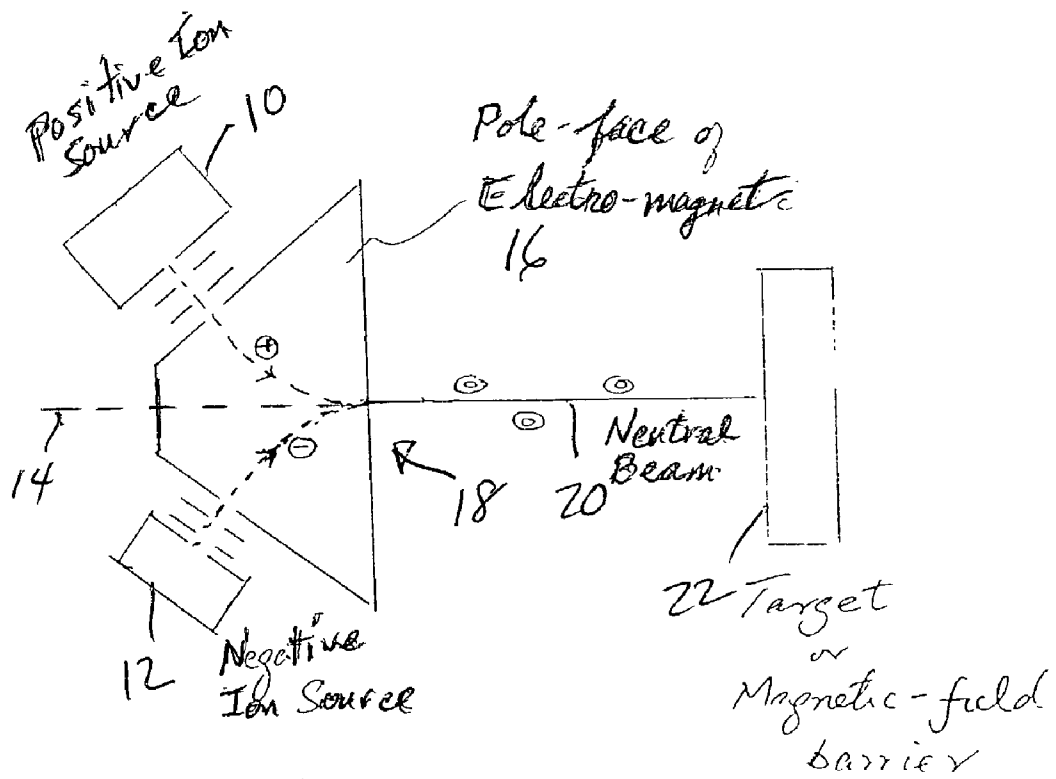 Positive Ion
Source
10
Pole-face of
Electro-magnetic
16
14
18
20
Neutral
Beam
12
Negative
Ion Source
22 Target
or
Magnetic-field
barrier